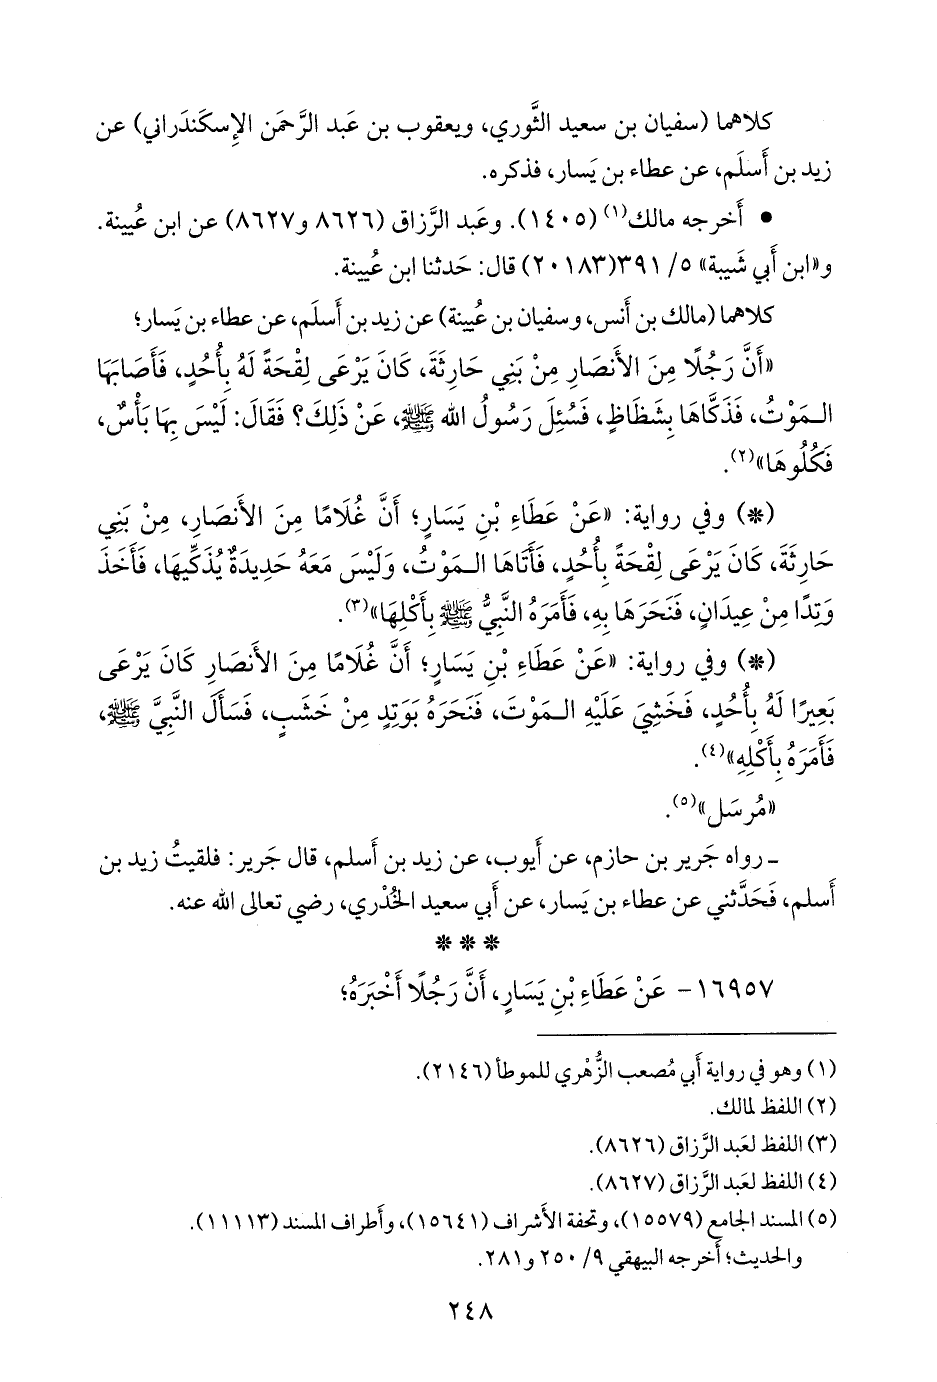 كلاهما (سفيان بن سعيد الثَّوري، ويعقوب بن عَبد الرَّحمَن الإِسكَندَراني) عن
زيد بن أَسلَم، عن عطاء بن يَسار، فذكره.
• أَخرجه مالك(١) (١٤٠٥). وعَبد الرَّزاق (٨٦٢٦ و٨٦٢٧) عن ابن عُيينة.
و«ابن أَبي شَيبة» ٥/ ٣٩١(٢٠١٨٣) قال: حَدثنا ابن عُيينة.
كلاهما (مالك بن أَنس، وسفيان بن عُيينة) عن زيد بن أَسلَم، عن عطاء بن يَسار؛
«أَنَّ رَجُلًا مِنَ الأَنصَارِ مِنْ بَنِي حَارِثَةَ، كَانَ يَرْعَى لِقْحَةً لَهُ بِأُحُدٍ، فَأَصَابَهَا
الـمَوْتُ، فَذَكَّاهَا بِشَظَاظٍ، فَسُئِلَ رَسُولُ الله ﷺ، عَنْ ذَلِكَ؟ فَقَالَ: لَيْسَ بِهَا بَأْسٌ،
فَكُلُوهَا»(٢).
(*) وفي رواية: «عَنْ عَطَاءِ بْنِ يَسَارٍ؛ أَنَّ غُلَامًا مِنَ الأَنصَارِ، مِنْ بَنِي
حَارِثَةَ، كَانَ يَرْعَى لِقْحَةً بِأُحُدٍ، فَأَتَاهَا الـمَوْتُ، وَلَيْسَ مَعَهُ حَدِيدَةٌ يُذَكِّيهَا، فَأَخَذَ
وَتِدًا مِنْ عِيدَانٍ، فَنَحَرَهَا بِهِ، فَأَمَرَهُ النَّبِيُّ ﷺ بِأَكْلِهَا»(٣).
(*) وفي رواية: «عَنْ عَطَاءِ بْنِ يَسَارٍ؛ أَنَّ غُلَامًا مِنَ الأَنصَارِ كَانَ يَرْعَى
بَعِيرًا لَهُ بِأُحُدٍ، فَخَشِيَ عَلَيْهِ الـمَوْتَ، فَنَحَرَهُ بَوَتِدٍ مِنْ خَشَبٍ، فَسَأَلَ النَّبِيَّ ﷺ،
فَأَمَرَهُ بِأَكْلِهِ»(٤).
«مُرسَل»(٥).
ـ رواه جَرير بن حازم، عن أَيوب، عن زيد بن أَسلم، قال جَرير: فلقيتُ زيد بن
أَسلم، فَحَدَّثني عن عطاء بن يَسار، عن أَبي سعيد الخُدْري، رضي تعالى الله عنه.
* * *
١٦٩٥٧ - عَنْ عَطَاءِ بْنِ يَسَارٍ، أَنَّ رَجُلًا أَخْبَرَهُ؛
(١) وهو في رواية أَبي مُصعب الزُّهْري للموطأ (٢١٤٦).
(٢) اللفظ لمالك.
(٣) اللفظ لعَبد الرَّزاق (٨٦٢٦).
(٤) اللفظ لعَبد الرَّزاق (٨٦٢٧).
(٥) المسند الجامع (١٥٥٧٩)، وتحفة الأَشراف (١٥٦٤١)، وأَطراف المسند (١١١١٣).
والحديث؛ أَخرجه البيهقي ٩/ ٢٥٠ و٢٨١.
٢٤٨